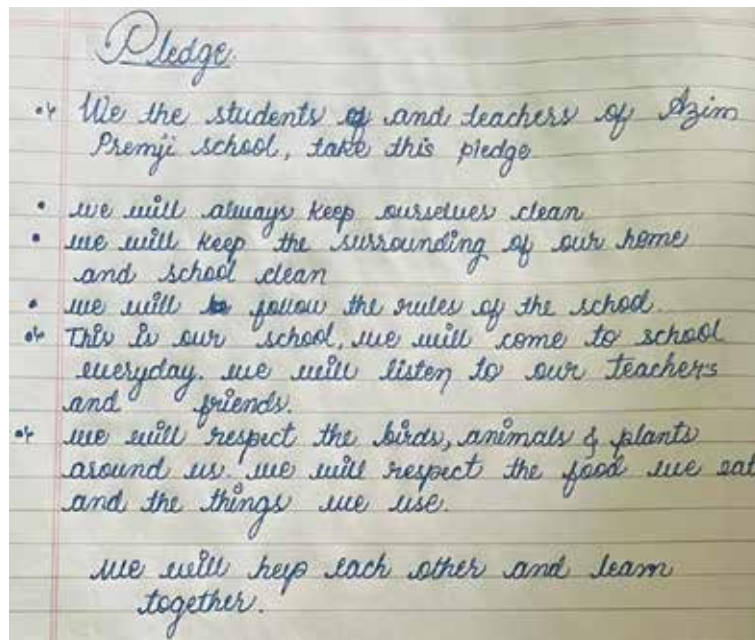 Pledge
We the students of and teachers of Azim
Premji school, take this pledge
• we will always keep ourselves clean
• we will keep the surrounding of our home
and school clean
• we will follow the rules of the school.
• This is our school, we will come to school
everyday. we will listen to our teachers
and friends.
• we will respect the birds, animals & plants
around us. we will respect the food we eat
and the things we use.
we will help each other and learn
together.